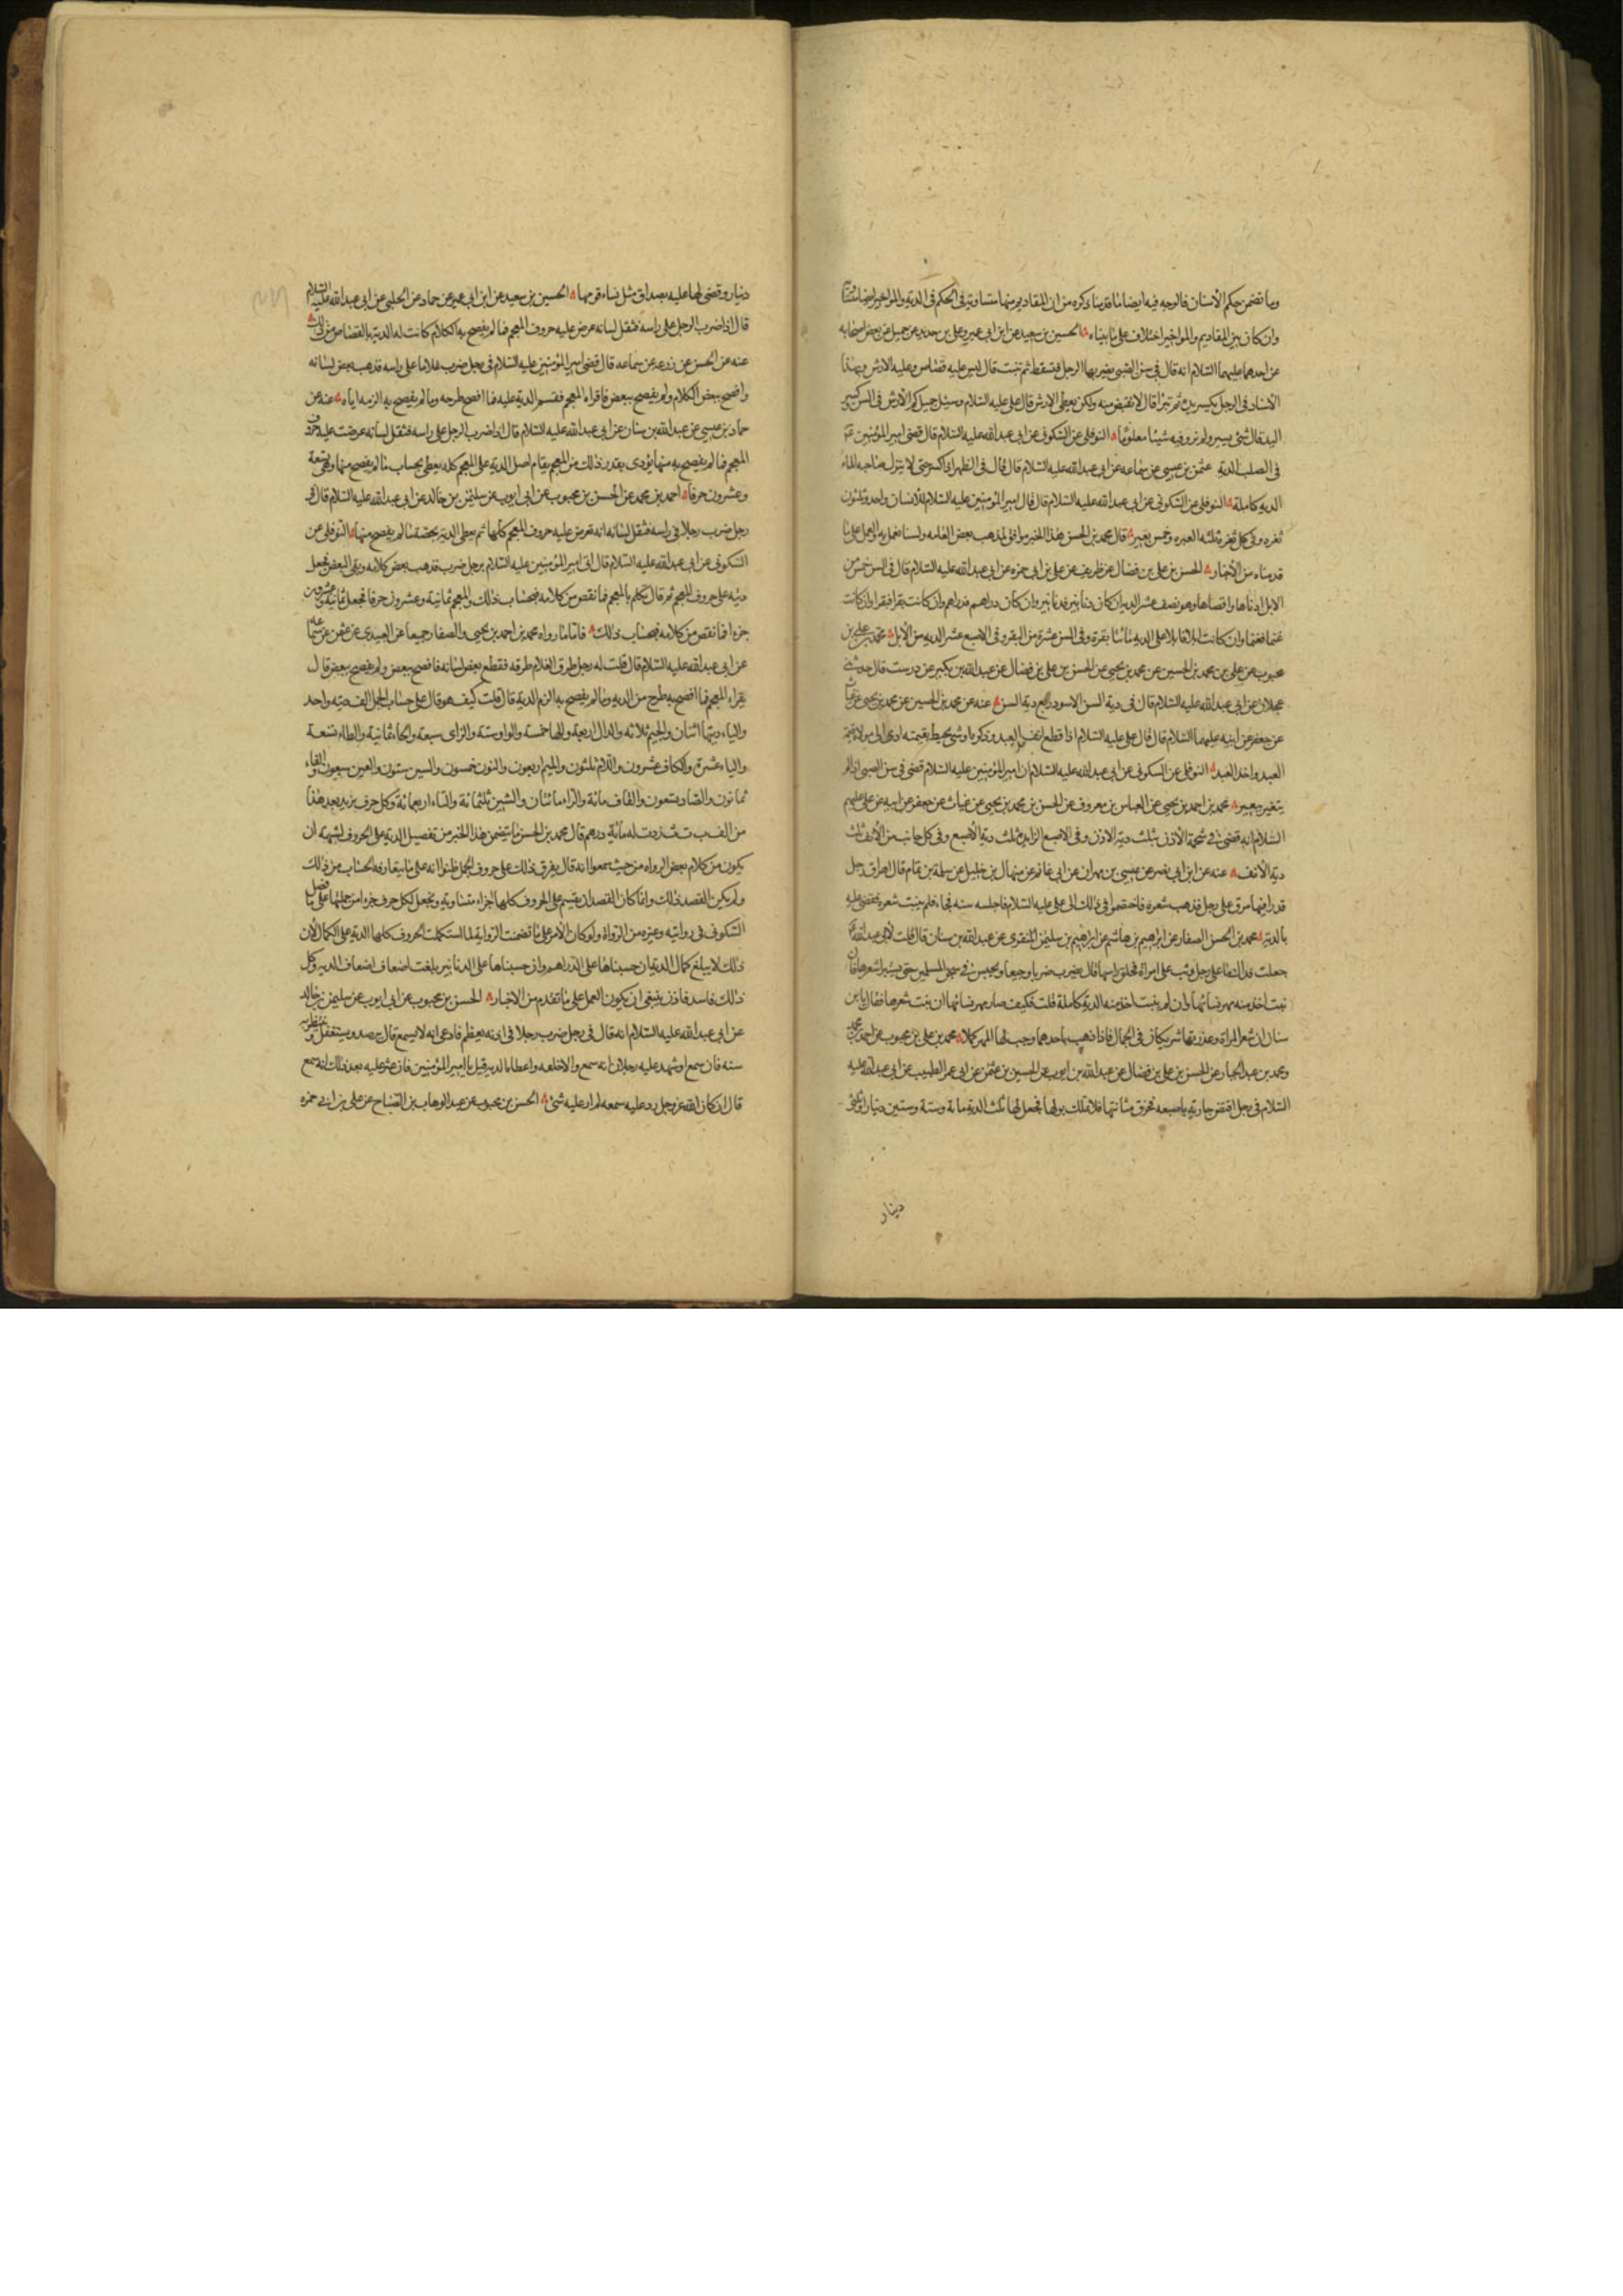 وما تضمن حكم الأسنان فالوجه فيه ايضا ما قدمنا ذكره من ان المقاديم منها متساوية في الحكم في الدية والمواخير ايضا
وان كان بين المقاديم والمواخير اختلاف على ما بيناه الحسين بن سعيد عن ابن ابي عمير وعلى بن حديد عن جميل عن بعض اصحابه
عن احدهما عليهما السلام انه قال في سن الصبي يضربها الرجل فتسقط ثم تنبت قال ليس عليه قصاص وعليه الارش وبهذا
الاسناد في الرجل يكسر يده ثم تبرأ قال لا يقتص منه ولكن يعطى الارش قال على عليه السلام وسئل جميل كم الأرش في السن وكسر
اليد قال شئ يسير ولم يرو فيه شيئا معلوما النوفلي عن السكوني عن ابي عبدالله عليه السلام قال قضى امير المؤمنين
في الصلب الدية عثمن بن عيسى عن سماعه عن ابي عبدالله عليه السلام قال قال في الظهر اذا كسر حتى لا ينزل صاحبه الماء
الدية كاملة النوفلي عن السكوني عن ابي عبدالله عليه السلام قال قال امير المؤمنين عليه السلام للانسان واحد وثلثون
ثغره وفي كل ثغره ثلثه ابعره وخمس بعير قال محمد بن الحسن هذا الخبر موافق لمذهب بعض العامه ولسنا نعمل به والعمل على ما
قدمناه من الأخبار الحسن بن على بن فضال عن ظريف عن على بن ابي حمزه عن ابي عبدالله عليه السلام قال في السن خمس من
الابل ادناها واقصاها وهو نصف عشر الديه ان كان دنانير فدنانير وان كان دراهم فدراهم وان كانت بقرا فبقرا وان كانت
غنما فغنما وان كانت ابلا فابلا على الدية مائتا بقرة وفي السن عشرة من البقر وفي الاصبع عشر الديه من الأبل محمد بن على بن
محبوب عن على بن محمد بن الحسين عن محمد بن يحيى عن الحسن بن على بن فضال عن عبدالله بن بكير عن درست قال حدثني
عجلان عن ابي عبدالله عليه السلام قال في دية السن الاسود ربع دية السن عنه عن محمد بن الحسين عن محمد بن يحيى عن غياث
عن جعفر عن ابيه عليهما السلام قال قال على عليه السلام اذا قطع انف العبد وذكره او شئ يحيط بقيمته ادى الى مولاه قيمة
العبد واخذ العبد النوفلي عن السكوني عن ابي عبدالله عليه السلام ان امير المؤمنين عليه السلام قضى في سن الصبي اذا لم
يتغير ببعير محمد بن احمد بن يحيى عن العباس بن معروف عن الحسن بن محمد بن يحيى عن غياث عن جعفر عن ابيه عن على عليهم
السلام انه قضى في شحمة الأذن بثلث دية الاذن وفي الاصبع الزايده ثلث دية الأصبع وفي كل جانب من الأنف ثلث
دية الأنف عنه عن ابن ابي نصر عن عيسى بن مهران عن ابي غانم عن منهال بن خليل عن سلمة بن تمام قال اهراق رجل
قدرا فيها مرق على رجل فذهب شعره فاختصموا في ذلك الى على عليه السلام فاجله سنه فجاء فلم ينبت شعره فقضى عليه
بالدية محمد بن الحسن الصفار عن ابرهيم بن هاشم عن ابرهيم بن سليمن المنقرى عن عبدالله بن سنان قال قلت لأبي عبدالله
جعلت فداك ما على رجل وثب على امرأة فحلق راسها قال يضرب ضربا وجيعا ويحبس في سجن المسلمين حتى يستبرأ شعرها فان
نبت اخذ منه مهر نسائها وان لم ينبت اخذ منه الدية كاملة قلت فكيف صار مهر نسائها ان نبت شعرها فقال يا بن
سنان ان شعر المراة وعذرتها شريكان في الجمال فاذا ذهب باحدهما وجب لها المهر كملا محمد بن على بن محبوب عن احمد بن محمد
ومحمد بن عبد الجبار عن الحسن بن على بن فضال عن عبدالله بن ايوب عن الحسين بن عثمن عن ابي عمر الطبيب عن ابي عبدالله عليه
السلام في رجل افتض جارية باصبعه فخرق مثانتها فلا تملك بولها فجعل لها ثلث الدية مائة وستة وستين دينارا وثلثي
دينار
دينار وقضى لها عليه بصداق مثل نساء قومها الحسين بن سعيد عن ابن ابي عمير عن حماد عن الحلبي عن ابي عبدالله عليه السلام
قال اذا ضرب الرجل على راسه فثقل لسانه عرض عليه حروف المعجم فما لم يفصح به الكلام كانت له الدية بالقصاص من ذلك
عنه عن الحسن عن زرعه عن سماعه قال قضى امير المؤمنين عليه السلام في رجل ضرب غلاما على راسه فذهب بعض لسانه
وافصح ببعض الكلام ولم يفصح ببعض فاقراه المعجم فقسم الدية عليه فما افصح طرحه وما لم يفصح به الزمه اياه عنه عن
حماد بن عيسى عن عبدالله بن سنان عن ابي عبدالله عليه السلام قال اذا ضرب الرجل على راسه فثقل لسانه عرضت عليه حروف
المعجم فما لم يفصح به منها يؤدى بقدر ذلك من المعجم يقام اصل الدية على المعجم كله يعطى بحساب ما لم يفصح منها وهى تسعة
وعشرون حرفا احمد بن محمد عن الحسن بن محبوب عن ابي ايوب عن سليمن بن خالد عن ابي عبدالله عليه السلام قال في
رجل ضرب رجلا في راسه فثقل لسانه انه يعرض عليه حروف المعجم كلها ثم يعطى الدية بحصة ما لم يفصح منها النوفلي عن
السكوني عن ابي عبدالله عليه السلام قال اتى امير المؤمنين عليه السلام برجل ضرب فذهب بعض كلامه وبقى البعض فجعل
ديته على حروف المعجم ثم قال تكلم بالمعجم فما نقص من كلامه فبحساب ذلك والمعجم ثمانية وعشرون حرفا فجعل ثمانية وعشرين
جزءا فما نقص من كلامه فبحساب ذلك فاما ما رواه محمد بن احمد بن يحيى والصفار جميعا عن العبيدى عن عثمن عن سماعه
عن ابي عبدالله عليه السلام قال قلت له رجل طرق لغلام طرقه فقطع بعض لسانه فافصح ببعض ولم يفصح ببعض قال
يقراء المعجم فما افصح به طرح من الديه وما لم يفصح به الزم الدية قال قلت كيف هو قال على حساب الجمل الف ديته واحد
والباء ديتها اثنان والجيم ثلاثه والدال اربعة والهاء خمسة والواو ستة والزاى سبعة والحاء ثمانية والطاء تسعة
والياء عشرة والكاف عشرون واللام ثلثون والميم اربعون والنون خمسون والسين ستون والعين سبعون والفاء
ثمانون والصاد تسعون والقاف مائة والراء مائتان والشين ثلثمائة والتاء اربعمائة وكل حرف يزيد بعد هذا
من الف ب ت ث زدت له مأئة درهم قال محمد بن الحسن ما يتضمن هذا الخبر من تفصيل الدية على الحروف يشبه ان
يكون من كلام بعض الرواه من حيث سمعوا انه قال يفرق ذلك على حروف الجمل ظنوا انه على ما يتعارفه الحساب من ذلك
ولم يكن القصد ذلك وانما كان القصد ان يقسم على الحروف كلها اجزاء متساوية ويجعل لكل حرف جزءا من جملتها على ما فصل
السكوني في روايته وغيره من الرواة ولو كان الأمر على ما تضمنت الرواية لما استكملت الحروف كلها الدية على الكمال لأن
ذلك لا يبلغ كمال الدية ان حسبناها على الدراهم وان حسبناها على الدنانير بلغت اضعاف اضعاف الديه وكل
ذلك فاسد فاذن ينبغى ان يكون العمل على ما تقدم من الاخبار الحسن بن محبوب عن ابي ايوب عن سليمن بن خالد
عن ابي عبدالله عليه السلام انه قال في رجل ضرب رجلا في اذنه بعظم فادعى انه لا يسمع قال يترصد ويستغفل وينتظر به
سنه فان سمع او شهد عليه رجلان انه سمع والا حلفه واعطاه الديه قيل يا امير المؤمنين فان عثر عليه بعد ذلك انه سمع
قال ان كان الله عز وجل رد عليه سمعه لم ار عليه شئ الحسن بن محبوب عن عبد الوهاب بن الصباح عن على بن ابي حمزه